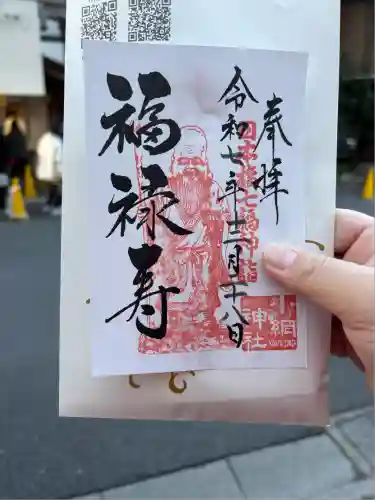 奉拝
日本橋七福神詣
令和七年十二月二十八日
福禄寿
小網
神社